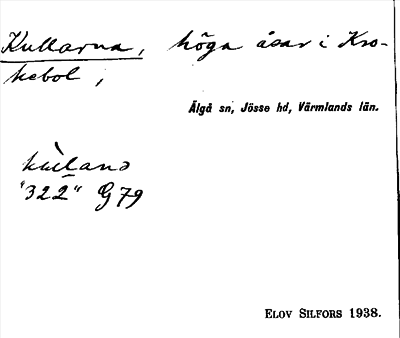 Kullarna, höga åsar i Kro-
kebol,
Älgå sn, Jösse hd, Värmlands län.
"322" G 79
ELOV SILFORS 1938.